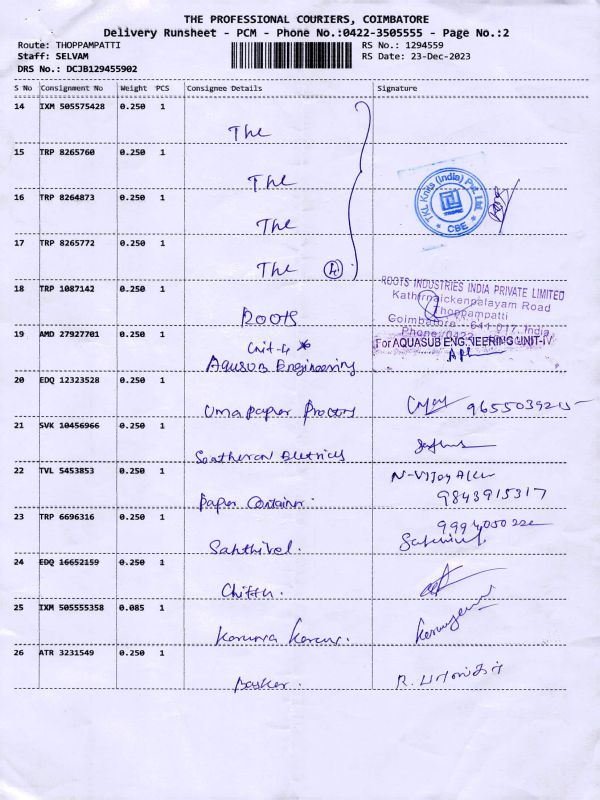 THE PROFESSIONAL COURIERS, COIMBATORE
Delivery Runsheet - PCM - Phone No.:0422-3505555 - Page No.:2
Route: THOPPAMPATTI
RS No.: 1294559
Staff: SELVAM
RS Date: 23-Dec-2023
DRS No.: DCJB129455902
S No Consignment No Weight PCS Consignee Details Signature
14 IXM 505575428 0.250 1
The
15 TRP 8265760 0.250 1
The
16 TRP 8264873 0.250 1
The
17 TRP 8265772 0.250 1
The 4
TKL Knits (India) Pvt Ltd
TROPIC
* CBE *
18 TRP 1087142 0.250 1
Roots
ROOTS INDUSTRIES INDIA PRIVATE LIMITED
Kathirnaickenpalayam Road
Thoppampatti
Coimbatore - 641 017. India
19 AMD 27927701 0.250 1
Unit-4
Aqusub Engineering
For AQUASUB ENGINEERING UNIT-IV
20 EDQ 12323528 0.250 1
Uma paper
9655039215
21 SVK 10456966 0.250 1
22 TVL 5453853 0.250 1
Paper Container.
N-Vijay
9843915317
23 TRP 6696316 0.250 1
Sakthivel.
24 EDQ 16652159 0.250 1
Chittu.
25 IXM 505555358 0.085 1
26 ATR 3231549 0.250 1
Basker.